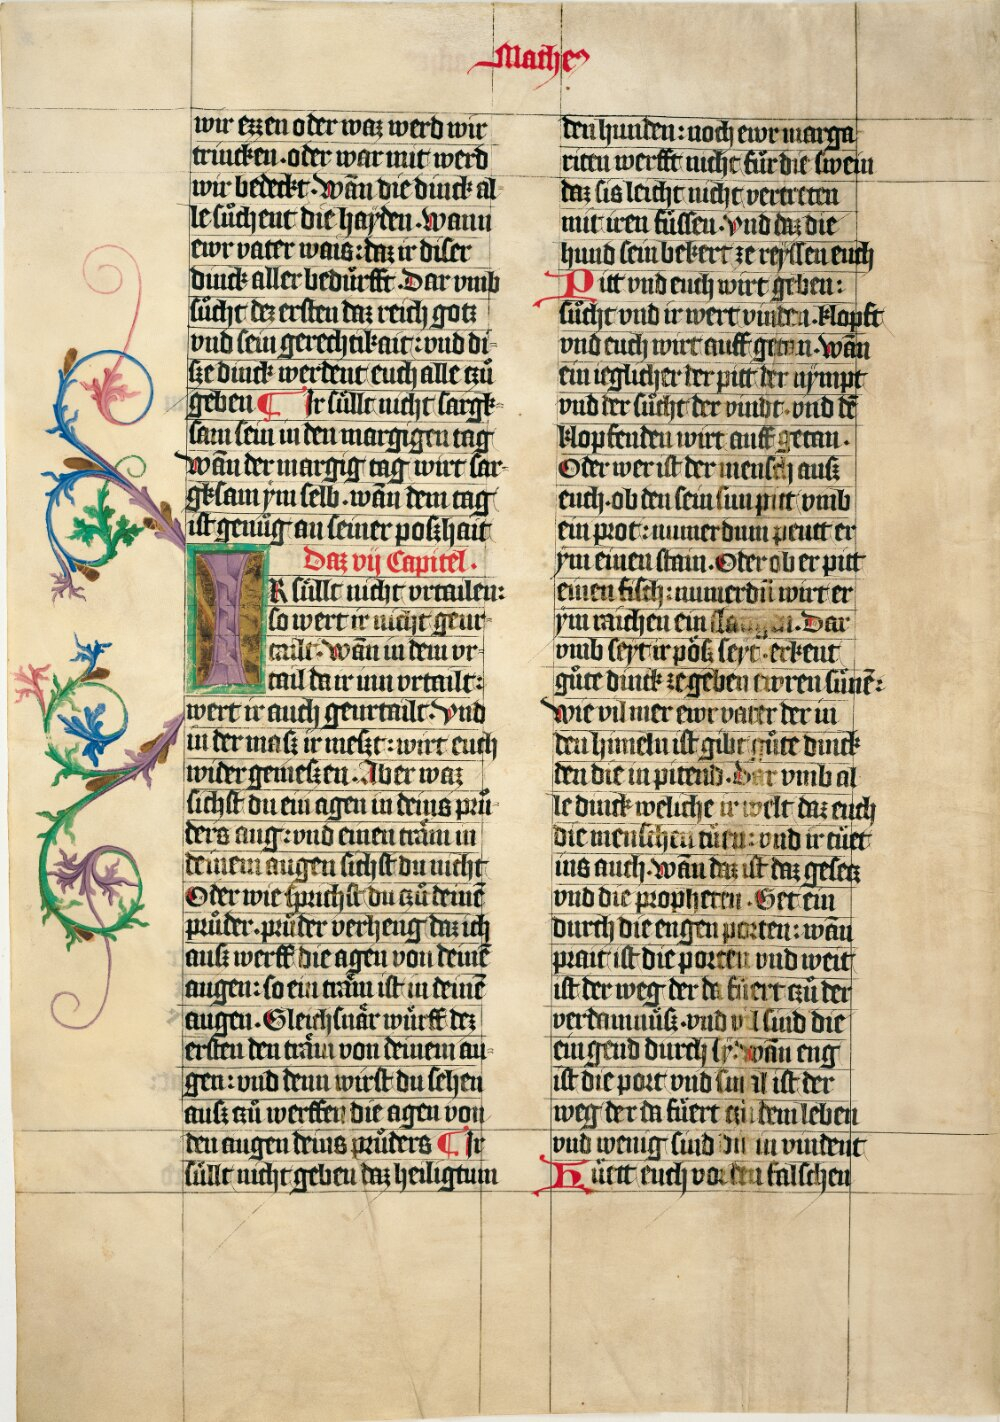 Mathe⁹
wir ezzen oder waz werd wir
trincken · oder war mit werd
wir bedeckt · Wān die dinck al-
le sůchent die hayden · Wann
ewr vater wais : daz ir diser
dinck aller bedürfft · Dar vmb
sůcht dez ersten daz reich gotz
vnd sein gerechtikait : vnd di-
sze dinck werdent euch alle czů
geben ¶ Ir süllt nicht sargk-
sam sein in den margigen tag
Wān der margig tag wirt sar-
gksam ym selb · wān dem tag
ist genůg an seiner poszhait
Daz vij Capitel ·
IR süllt nicht vrtailen :
so wert ir nicht geur-
tailt · Wān in dem vr-
tail da ir inn vrtailt :
wert ir auch geurtailt · Vnd
in der masz ir meszt : wirt euch
wider gemeszen · Aber waz
sichst du ein agen in deins prů-
ders aug : vnd einen träm in
deinem augen sichst du nicht
Oder wie sprichst du czů deinē
průder · průder verheng daz ich
ausz werff die agen von deinē
augen : so ein träm ist in deinē
augen · Gleichsnär würff dez
ersten den träm von deinem au-
gen : vnd denn wirst du sehen
ausz czů werffen die agen von
den augen deins průders ¶ Ir
süllt nicht geben daz heiligtum
den hunden : noch ewr marga-
riten werfft nicht für die swein
daz sis leicht nicht vertreten
mit iren füssen · Vnd daz die
hund sein bekert ze reyssen euch
Pitt vnd euch wirt geben :
sůcht vnd ir wert vinden · Klopft
vnd euch wirt auff getan · Wān
ein ieglicher der pitt der nympt
vnd der sůcht der vindt · vnd dē
klopfenden wirt auff getan ·
Oder wer ist der mensch ausz
euch · ob den sein sun pitt vmb
ein prot : numerdum peutt er
ym einen stain · Oder ob er pitt
einen fisch : numerdū wirt er
ym raichen ein slangen · Dar
vmb seyt ir pösz seyt · erkent
gůte dinck ze geben ewren sünē :
Wie vil mer ewr vater der in
den himeln ist gibt gůte dinck
den die in pitend · Dar vmb al
le dinck weliche ir welt daz euch
die menschen tüen : vnd ir tüet
ins auch · Wān daz ist daz gesetz
vnd die propheten · Get ein
durch die engen porten : wān
prait ist die porten vnd weit
ist der weg der da füert czů der
verdamnüsz · vnd vil sind die
ein gend durch sy : Wān eng
ist die port vnd smal ist der
weg der da füert czů dem leben
vnd wenig sind die in vindent
Hüett euch vor den falschen